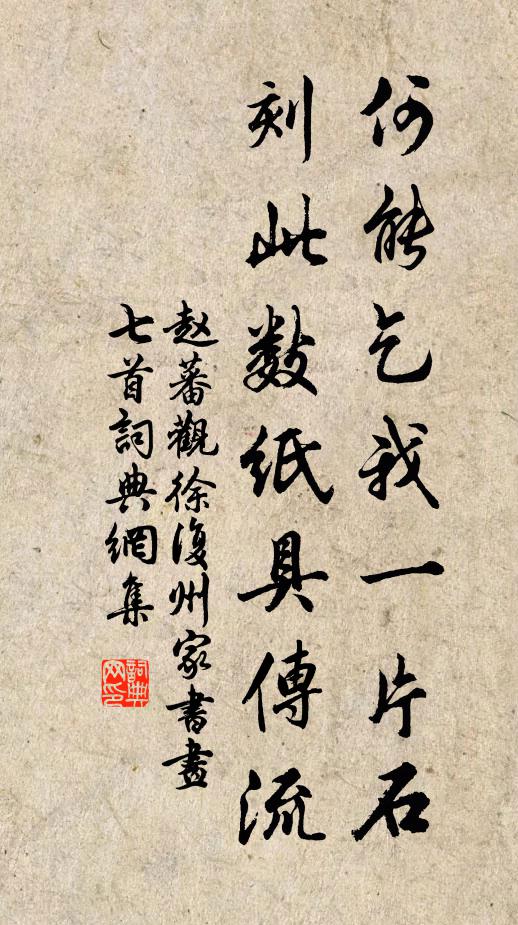 何能乞我一片石
刻此数紙具傳流
赵蕃觀徐復州家書畫
七首詞典網集
詞典网印